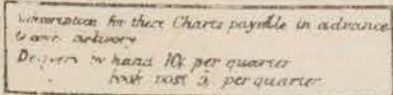 Subscription for these Charts payable in advance
delivery
by hand 10/ per quarter
book post 5/ per quarter